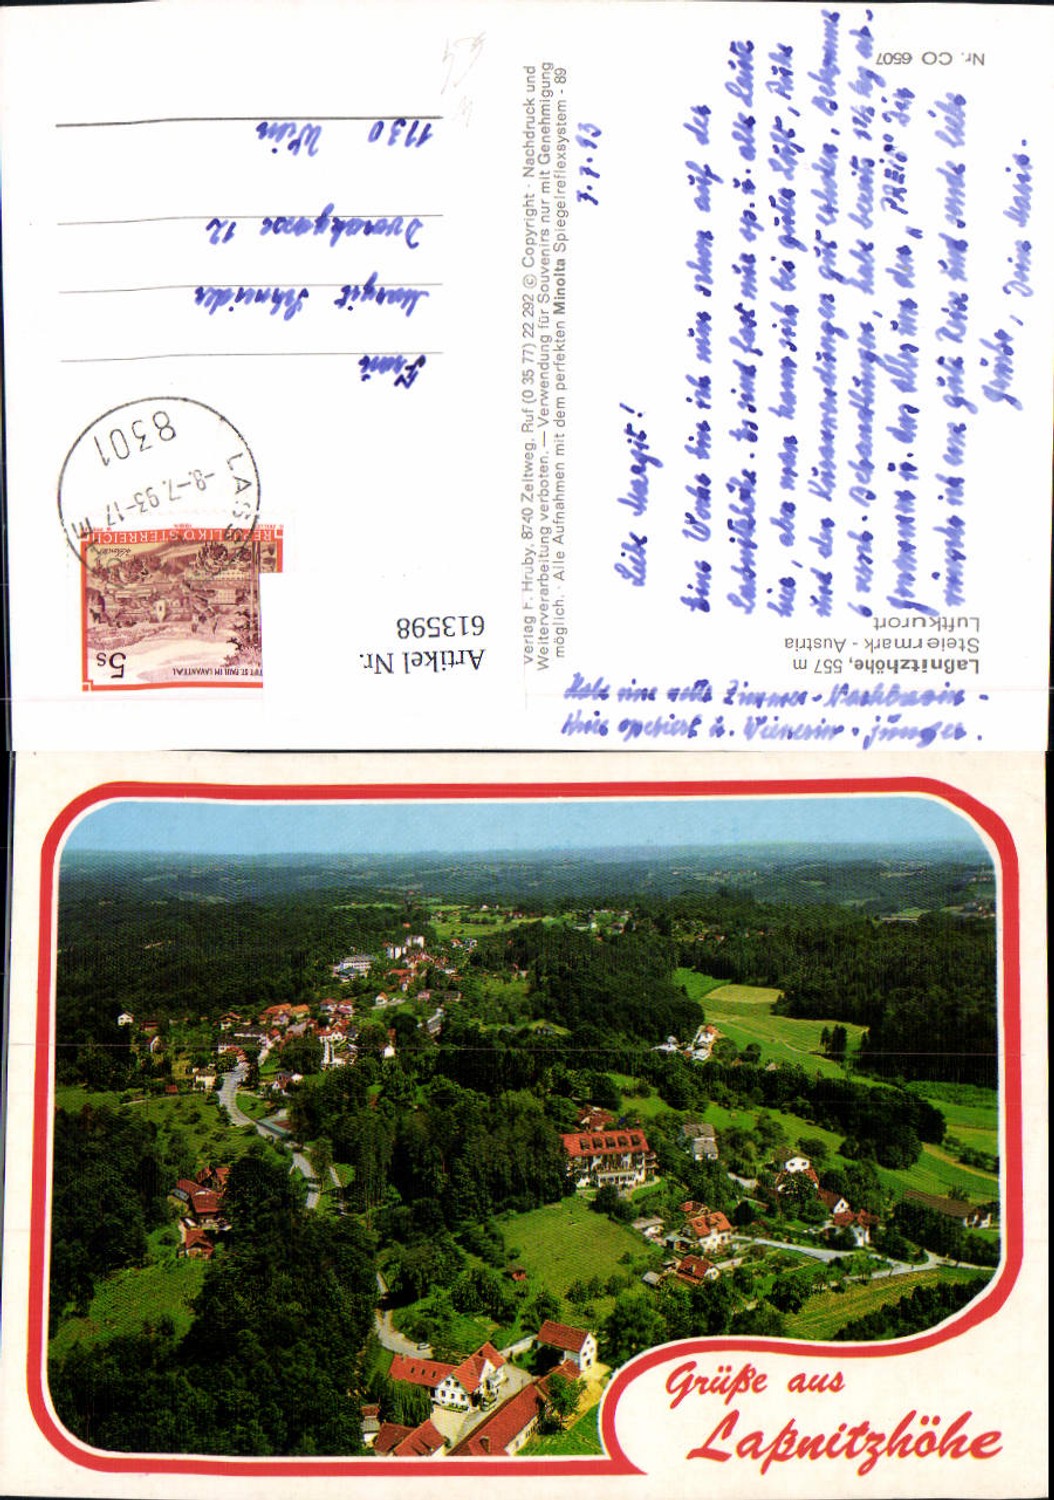 Laßnitzhöhe, 557 m
Steiermark - Austria
Luftkurort
Nr. CO 6507
7.7.93
Liebe Margit!
Eine Woche bin ich nun schon auf der
Laßnitzhöhe. Es sind fast nur op. u. alte Leute
hier, aber man kann sich bei guter Luft, Ruhe
und den Kuranwendungen gut erholen. Bekomme
6 versch. Behandlungen, habe bereits
genommen u. das alles um den "PREIS" Ich
wünsche ich eine gute Reise und sende liebe
Grüße, Deine Maria.
Habe eine nette Zimmer-Nachbarin -
Knie operiert u. Wienerin - jünger.
Verlag F. Hruby, 8740 Zeltweg, Ruf (0 35 77) 22 292 © Copyright · Nachdruck und
Weiterverarbeitung verboten. — Verwendung für Souvenirs nur mit Genehmigung
möglich. · Alle Aufnahmen mit dem perfekten Minolta Spiegelreflexsystem - 89
Artikel Nr.
613598
5s
STIFT ST. PAUL IM LAVANTTAL
REPUBLIK ÖSTERREICH
8301
-8.-7.93-17
Frau
Margit Schneider
Dvorakgasse 12
1130 Wien
Grüße aus
Laßnitzhöhe